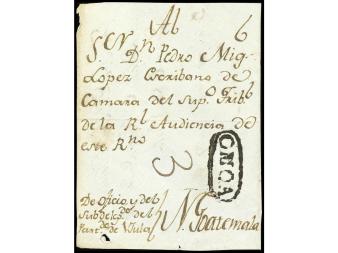 Al
S.or D.n Pedro Mig- 6
Lopez Escribano de
Camara del Sup.o Trib.l
de la R.l Audiencia de
este R.no
3
CNCA
De Oficio y del
Subdeleg.do del
Part.do de
N. Goatemala